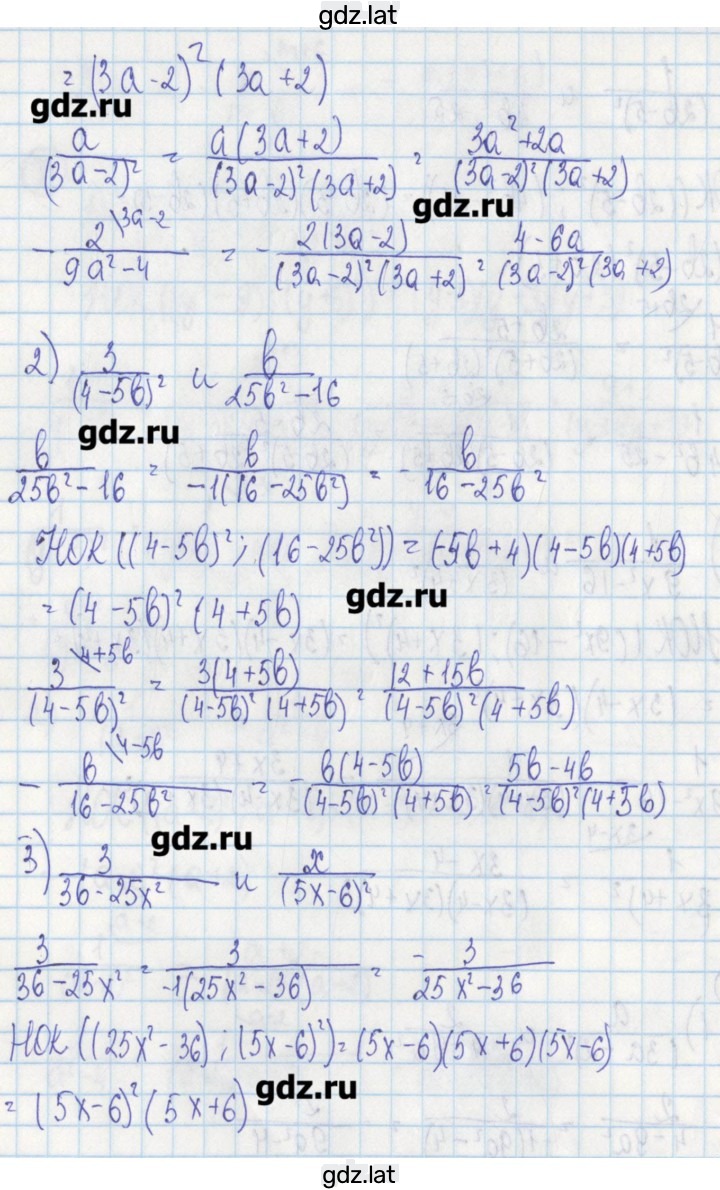 gdz.lat
= (3a-2)²(3a+2)
gdz.ru
a/(3a-2)² = a(3a+2)/((3a-2)²(3a+2)) = (3a²+2a)/((3a-2)²(3a+2))
gdz.ru
- 2\3a-2/(9a²-4) = - 2(3a-2)/((3a-2)²(3a+2)) = (4-6a)/((3a-2)²(3a+2))
2) 3/(4-5b)² и b/(25b²-16)
gdz.ru
b/(25b²-16) = b/(-1(16-25b²)) = - b/(16-25b²)
НОК ((4-5b)²; (16-25b²)) = (-5b+4)(4-5b)(4+5b)
= (4-5b)²(4+5b)
gdz.ru
3\4+5b/(4-5b)² = 3(4+5b)/((4-5b)²(4+5b)) = (12+15b)/((4-5b)²(4+5b))
- b\4-5b/(16-25b²) = - b(4-5b)/((4-5b)²(4+5b)) = (5b-4b)/((4-5b)²(4+5b))
gdz.ru
3) 3/(36-25x²) и x/(5x-6)²
3/(36-25x²) = 3/(-1(25x²-36)) = - 3/(25x²-36)
НОК ((25x²-36); (5x-6)²) = (5x-6)(5x+6)(5x-6)
= (5x-6)²(5x+6)
gdz.ru
gdz.lat